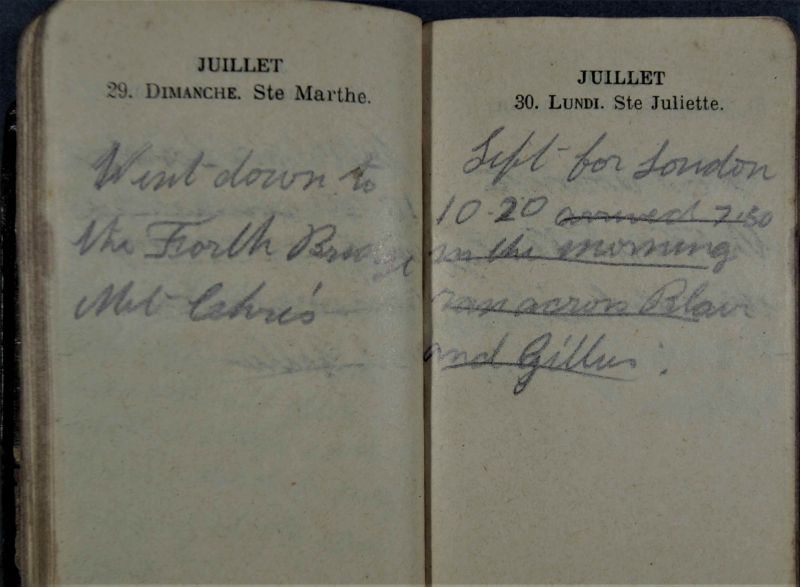 JUILLET
29. DIMANCHE. Ste Marthe.
Went down to
the Forth Bridge
Met Chris
JUILLET
30. LUNDI. Ste Juliette.
Left for London
10-20 arrived 7.30
in the morning
ran across Blair
and Gillies.